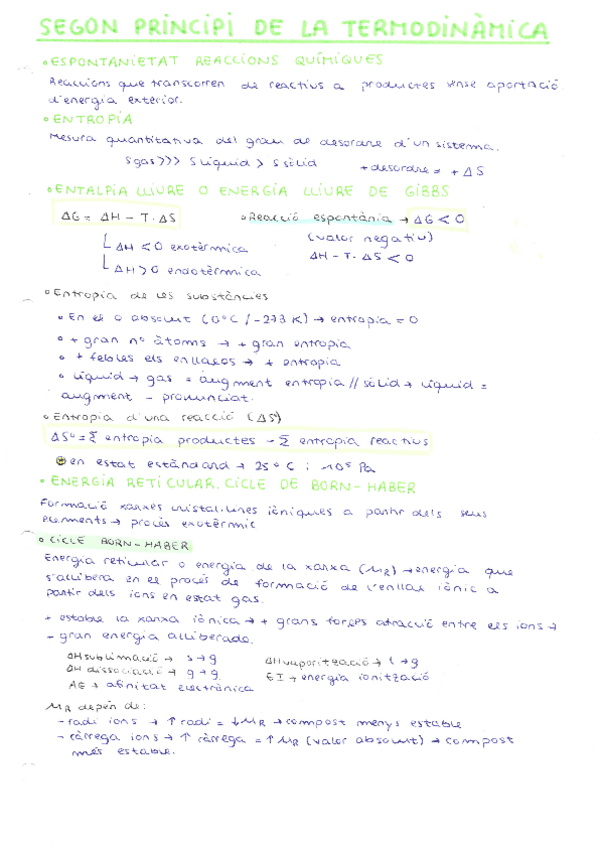 SEGON PRINCIPI DE LA TERMODINÀMICA
• ESPONTANIETAT REACCIONS QUÍMIQUES
Reaccions que transcorren de reactius a productes sense aportació
d'energia exterior.
• ENTROPIA
Mesura quantitativa del grau de desordre d'un sistema.
S gas >>> S líquid > S sòlid + desordre = + ΔS
• ENTALPIA LLIURE O ENERGIA LLIURE DE GIBBS
ΔG = ΔH - T·ΔS • Reacció espontània → ΔG < 0
(valor negatiu)
ΔH < 0 exotèrmica ΔH - T·ΔS < 0
ΔH > 0 endotèrmica
• Entropia de les substàncies
• En el 0 absolut (0°C / -273 K) → entropia = 0
• + gran nº àtoms → + gran entropia
• + febles els enllaços → + entropia
• Líquid → gas = augment entropia // sòlid → líquid =
augment - pronunciat.
• Entropia d'una reacció (ΔS°)
ΔS° = Σ entropia productes - Σ entropia reactius
en estat estàndard → 25°C i 10⁵ Pa
• ENERGIA RETICULAR. CICLE DE BORN-HABER
Formació xarxes cristal·lines iòniques a partir dels seus
elements → procés exotèrmic
• CICLE BORN-HABER
Energia reticular o energia de la xarxa (UR) → energia que
s'allibera en el procés de formació de l'enllaç iònic a
partir dels ions en estat gas.
+ estable la xarxa iònica → + grans forces atracció entre els ions →
- gran energia alliberada.
ΔH sublimació → s → g ΔH vaporització → l → g
ΔH dissociació → g → g EI → energia ionització
AE → afinitat electrònica
UR depèn de:
- radi ions → ↑ radi = ↓ UR → compost menys estable
- càrrega ions → ↑ càrrega = ↑ UR (valor absolut) → compost
més estable.